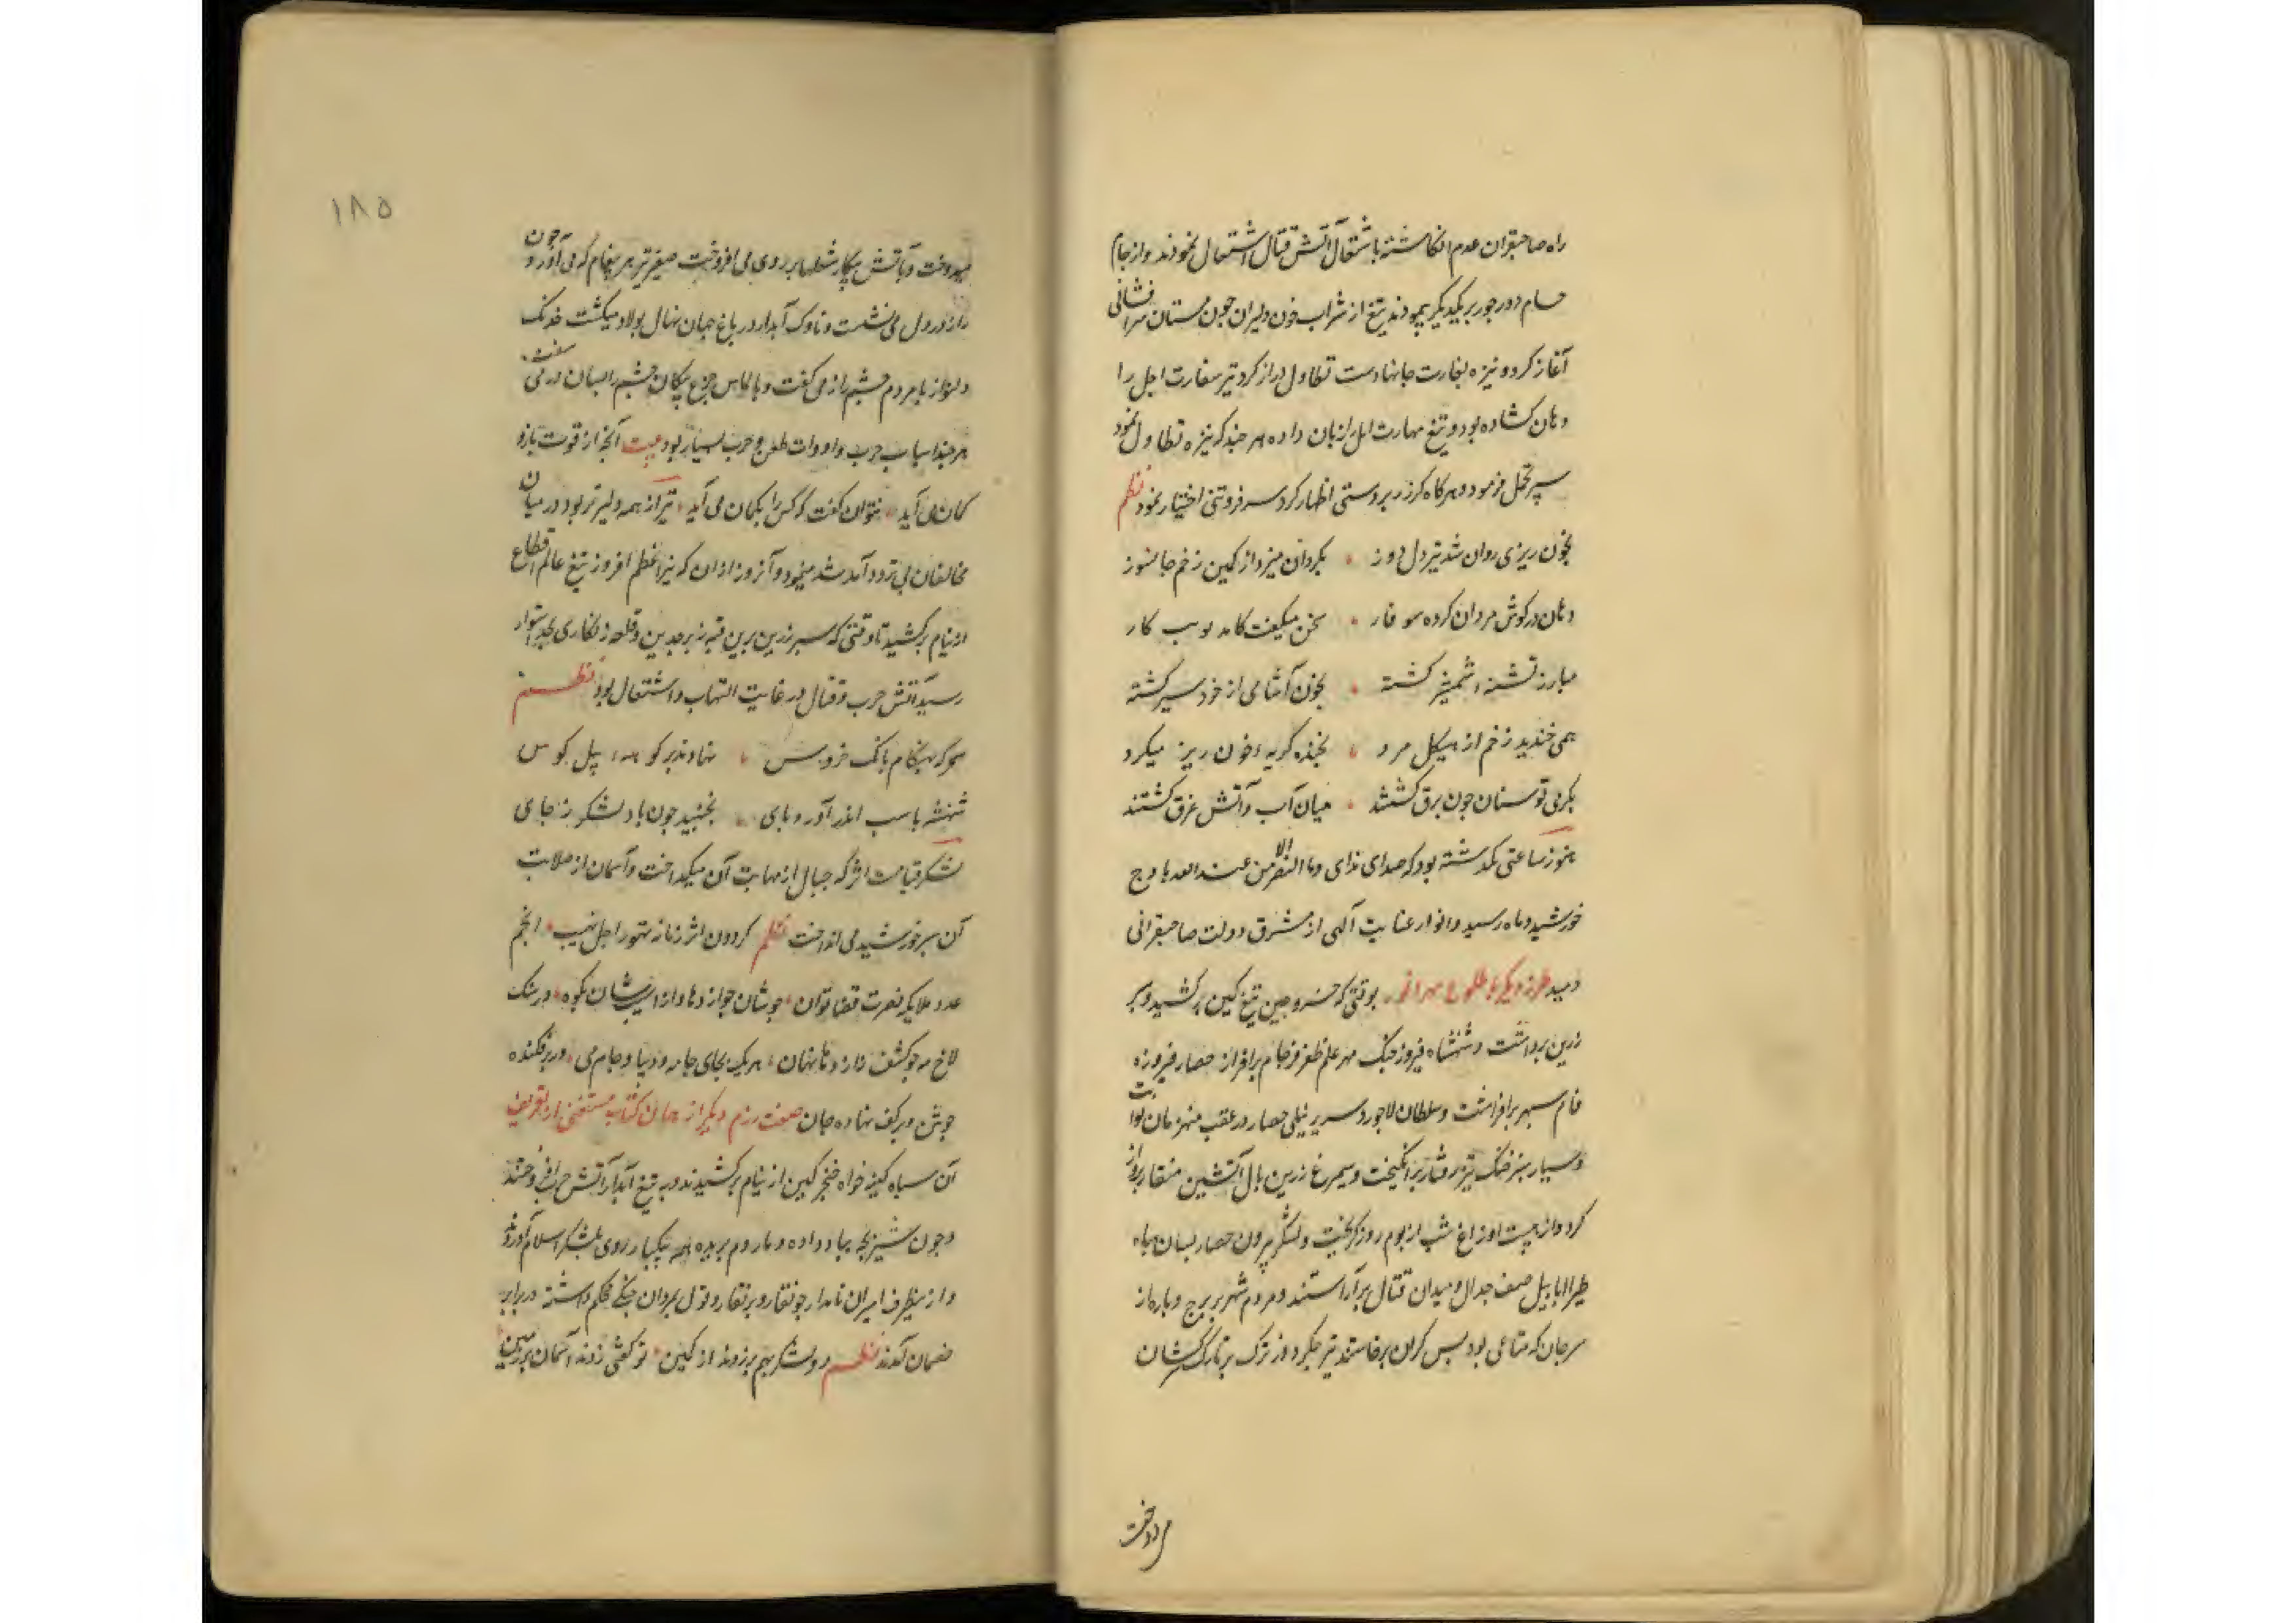 راه صاحبقران عدم انکاشته باشتعال آتش قتال اشتعال نمودند و از جام
حسام دور جور بر یکدیگر پیمودند تیغ از شراب خون دلیران جون مستان سرافشانی
آغاز کرد و نیزه بغارت جانها دست تطاول دراز کرد تیر سفارت اجل را
دهان کشاده بود و تیغ مهارت اجل زبان داده هر جند که نیزه تطاول نمود
سپر تحمل فرمود و هر کاه کرز زبردستی اظهار کرد سر فروتنی اختیار نمود نظم
بخون ریزی روان شد تیر دل دوز بکردان میزد از کمین زخم جانسوز
دهان در کوش مردان کرده سوفار سخن میکفت
مبارز تشنه شمشیر کشته بخون آشامی از خود سیر کشته
همی خندید زخم از هیکل مرد بخنده کریه خون ریز میکرد
بکرمی توسنان جون برق کشتند میان آب و آتش غرق کشتند
هنوز ساعتی نکذشته بود که صدای ندای وما النصر الا من عند الله باوج
خورشید و ماه رسید و انوار عنایت آلهی از مشرق دولت صاحبقرانی
دمید طرز دیکر با طلوع مهر انور بوقتی که خسرو جین تیغ کین برکشید و سپر
زرین برداشت و شهنشاه فیروز جنک مهر علم ظفر فرجام برافراز حصار فیروزه
فام سپهر برافراشت و سلطان لاجورد سریر نیلی حصار در عقب منهزمان ثوابت
و سیار سبز خنک تیز رفتار برانکیخت و سیمرغ زرین بال آتشین منقار پرواز
کرد و از هیبت او زاغ شب از بوم روز کریخت و لشکر بیرون حصار بسان سپاه
طیرا ابابیل صف جدال و میدان قتال برآراستند و مردم شهر بر برج و باره از
سر جان که متاعی بود بس کران برخاستند تیر جکردوز ترک بر تارک سرکشان
میدوخت
۱۸۵
میدوخت و بآتش پیکار شعلها بر روی می افروخت صفیر تیر هر پیغام که می آورد جون
راز در دل می نشست و ناوک آبدار در باغ جهان نهال پولاد میکشت خدنک
دلنواز با مردم چشم راز می کفت و بالماس جزع پیکان چشم را بسان در می سفت
هر جند اسباب حرب و ادوات طعن و ضرب بسیار بود بیت آنجه از قوت بازو
کمان می آید نتوان کفت که کس را بکمان می آید تیر از همه دلیرتر بود در میان
مخالفان بی تردد آمد شد مینمود و آنروز از آن که نیر اعظم افروز تیغ عالم اقطاع
از نیام برکشید تا وقتی که سپر زرین برین قبه زبرجدین و قلعه زنکاری بحد استوا
رسید آتش حرب و قتال در غایت التهاب و اشتعال بود نظم
سحر که بهنکام بانک خروس نهادند بر کوهه پیل کوس
شهنشه باسب اندر آورد پای بجنبید جون باد لشکر ز جای
لشکر قیامت اثر که جبال از مهابت آن میکداخت و آسمان از صلابت
آن سپر خورشید می انداخت نظم کردون اثر زمانه تهور اجل نهیب انجم
عدد ملایکه نصرت قضا توان جوشان جو اژدها و از آسیبشان بکوه در سنک
لاخ جو کشف اژدها نهان هر یک بجای جامه دیبا و جام می در برفکنده
جوشن و بر کف نهاده جان صفت رزم دیکر از همان کتاب مستغنی از تعریف
آن سپاه کینه خواه خنجر کین از نیام برکشیدند و به تیغ آبدار آتش حرب افروختند
و جون شیر بچه بباد داده و مار دم بریده همه بیکبار روی بلشکر اسلام آوردند
و ازینطرف امیران نامدار جونقار و برنقار و قول بمردان جنکی محکم داشته در برابر
خصمان آمدند نظم دو لشکر بهم بر زدند از کمین تو کفتی زدند آسمان بر زمین